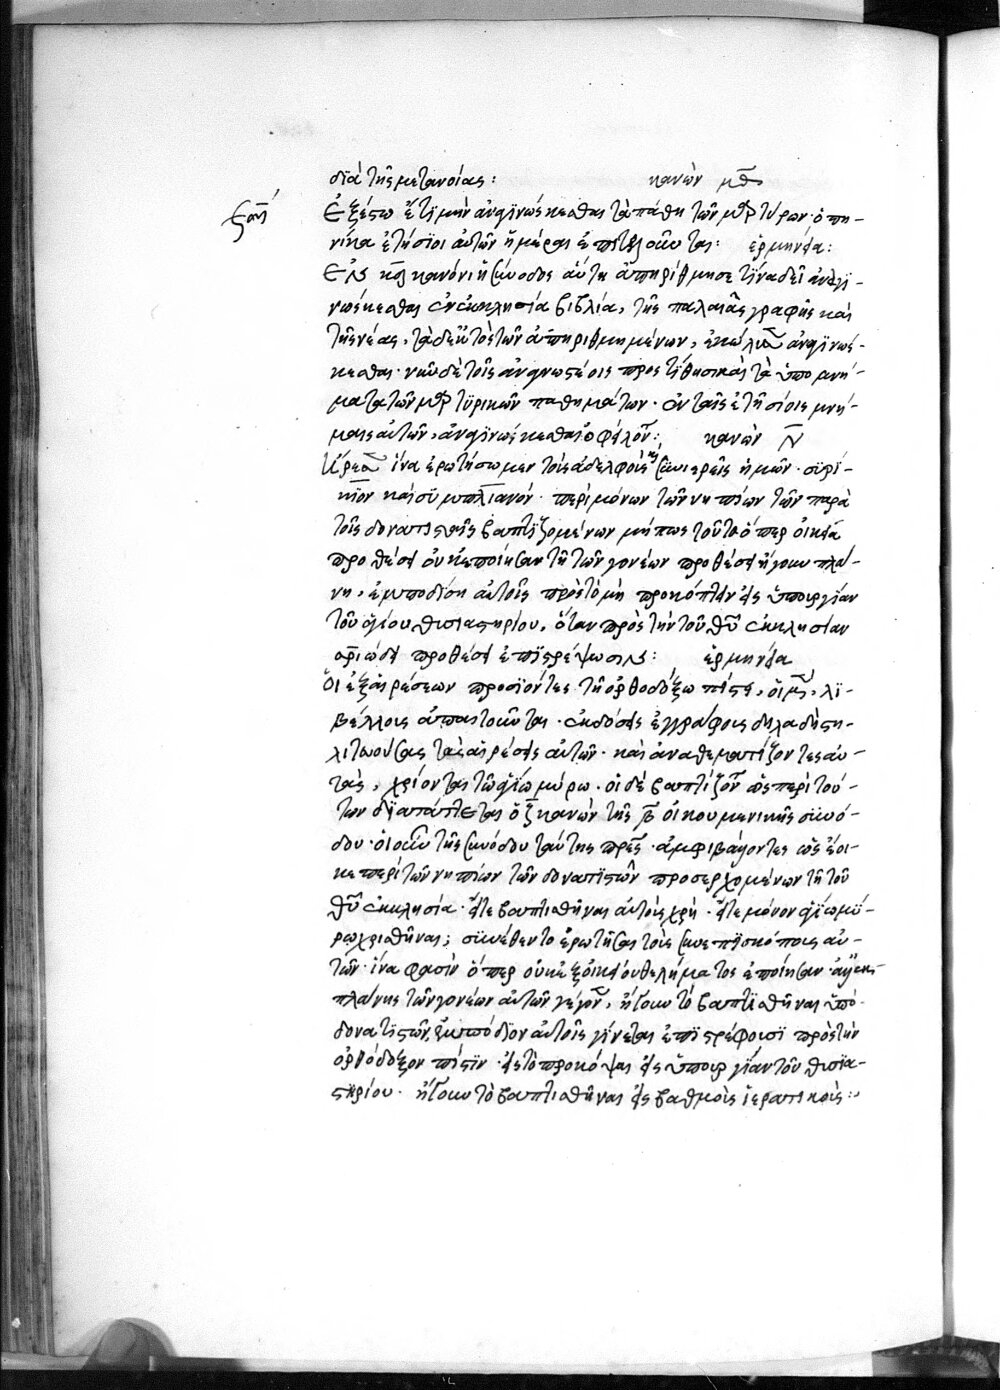 διὰ τῆς μετανοίας: κανὼν μθ
Ἐξέστω ἔτι μὴν ἀναγινώσκεσθαι τὰ πάθη τῶν μρτύρων· ὁπη-
νίκα ἐτήσιοι αὐτῶν ἡμέραι ἐπιτελοῦνται: ἑρμηνεία:
Ἐν κανόνι ἡ σύνοδος αὕτη ἀπηρίθμησε τίνα δεῖ ἀναγι-
νώσκεσθαι ἐν ἐκκλησία βιβλία, τῆς παλαιᾶς γραφῆς καὶ
τῆς νέας, τὰ δὲ ἐκτὸς τῶν ἀπηριθμημένων, ἐκώλυσεν ἀναγινώσ-
κεσθαι· νῦν δὲ τοῖς ἀναγνωστέοις προστίθησι καὶ τὰ ὑπομνή-
ματα τῶν μρτυρικῶν παθημάτων· ἐν ταῖς ἐτησίοις μνή-
μαις αὐτῶν, ἀναγινώσκεσθαι ὀφείλον: κανὼν ν
Ἤρεσεν ἵνα ἐρωτήσωμεν τοὺς ἀδελφοὺς καὶ συνιερεῖς ἡμῶν· σιρί-
κιον καὶ σιμπλικιανόν· περὶ μόνων τῶν νηπίων τῶν παρὰ
τοῖς δονατισταῖς βαπτιζομένων μήπως τοῦτο ὅπερ οἰκεία
προθέσει οὐκ ἐποίησαν τῇ τῶν γονέων προθέσει ἤγουν πλά-
νη, ἐμποδίση αὐτοῖς πρὸς τὸ μὴ προκόπτειν εἰς ὑπουργίαν
τοῦ ἁγίου θυσιαστηρίου, ὅταν πρὸς τὴν τοῦ θυ ἐκκλησίαν
σωτηριώδει προθέσει ἐπιστρέψωσιν: ἑρμηνεία
Οἱ ἐξ αἱρέσεων προσϊόντες τῇ ὀρθοδόξω πίστει, οἱ μὲν, λι-
βέλλους ἀπαιτοῦνται· ἐκδόσεις ἐγγράφους δηλαδὴ στη-
λιτευούσας τὰς αἱρέσεις αὐτῶν· καὶ ἀναθεματίζοντες αὐ-
τάς, χρίονται τῷ ἁγίω μύρω· οἱ δὲ βαπτίζονται ὡς περὶ τού-
των διατάττεται ὁ ζ κανὼν τῆς β οἰκουμενικῆς συνό-
δου· οἱ οὖν τῆς συνόδου ταύτης πρες· ἀμφιβάλλοντες ὡς ἔοι-
κε περὶ τῶν νηπίων τῶν δονατιστῶν προσερχομένων τῇ τοῦ
θυ ἐκκλησία· εἴτε βαπτισθῆναι αὐτοὺς χρὴ· εἴτε μόνον ἁγίω μύ-
ρω χρισθῆναι; συνέθεντο ἐρωτῆσαι τοὺς συνεπισκόπους αὐ-
τῶν· ἵνα φασὶν ὅπερ οὐκ ἐξ οἰκείου θελήματος ἐποίησαν· ἀλλ' ἐκ
πλάνης τῶν γονέων αὐτῶν γέγονεν, ἤγουν τὸ βαπτισθῆναι ὑπὸ
δονατιστῶν, ἐμπόδιον αὐτοῖς γίνεται ἐπιστρέφουσι πρὸς τὴν
ὀρθόδοξον πίστιν· εἰς τὸ προκόψαι εἰς ὑπουργίαν τοῦ θυσια-
στηρίου· ἤγουν τὸ βαπτισθῆναι εἰς βαθμοὺς ἱερατικούς: